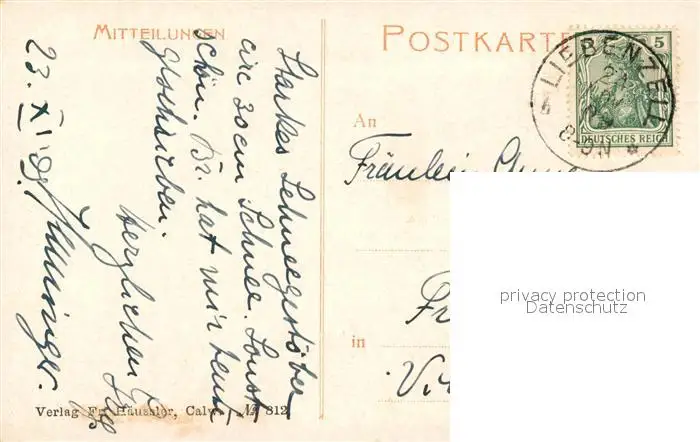 MITTEILUNGEN
POSTKARTE
Starkes Schneegestöber
circ 30 cm Schnee. Sonst
schön. Br. hat mir heut
geschrieben.
Herzlichen
23. XI. 09.
LIEBENZELL
5
DEUTSCHES REICH
An
Fräulein
in
privacy protection
Datenschutz
Verlag Fr. Häussler, Calw. № 812